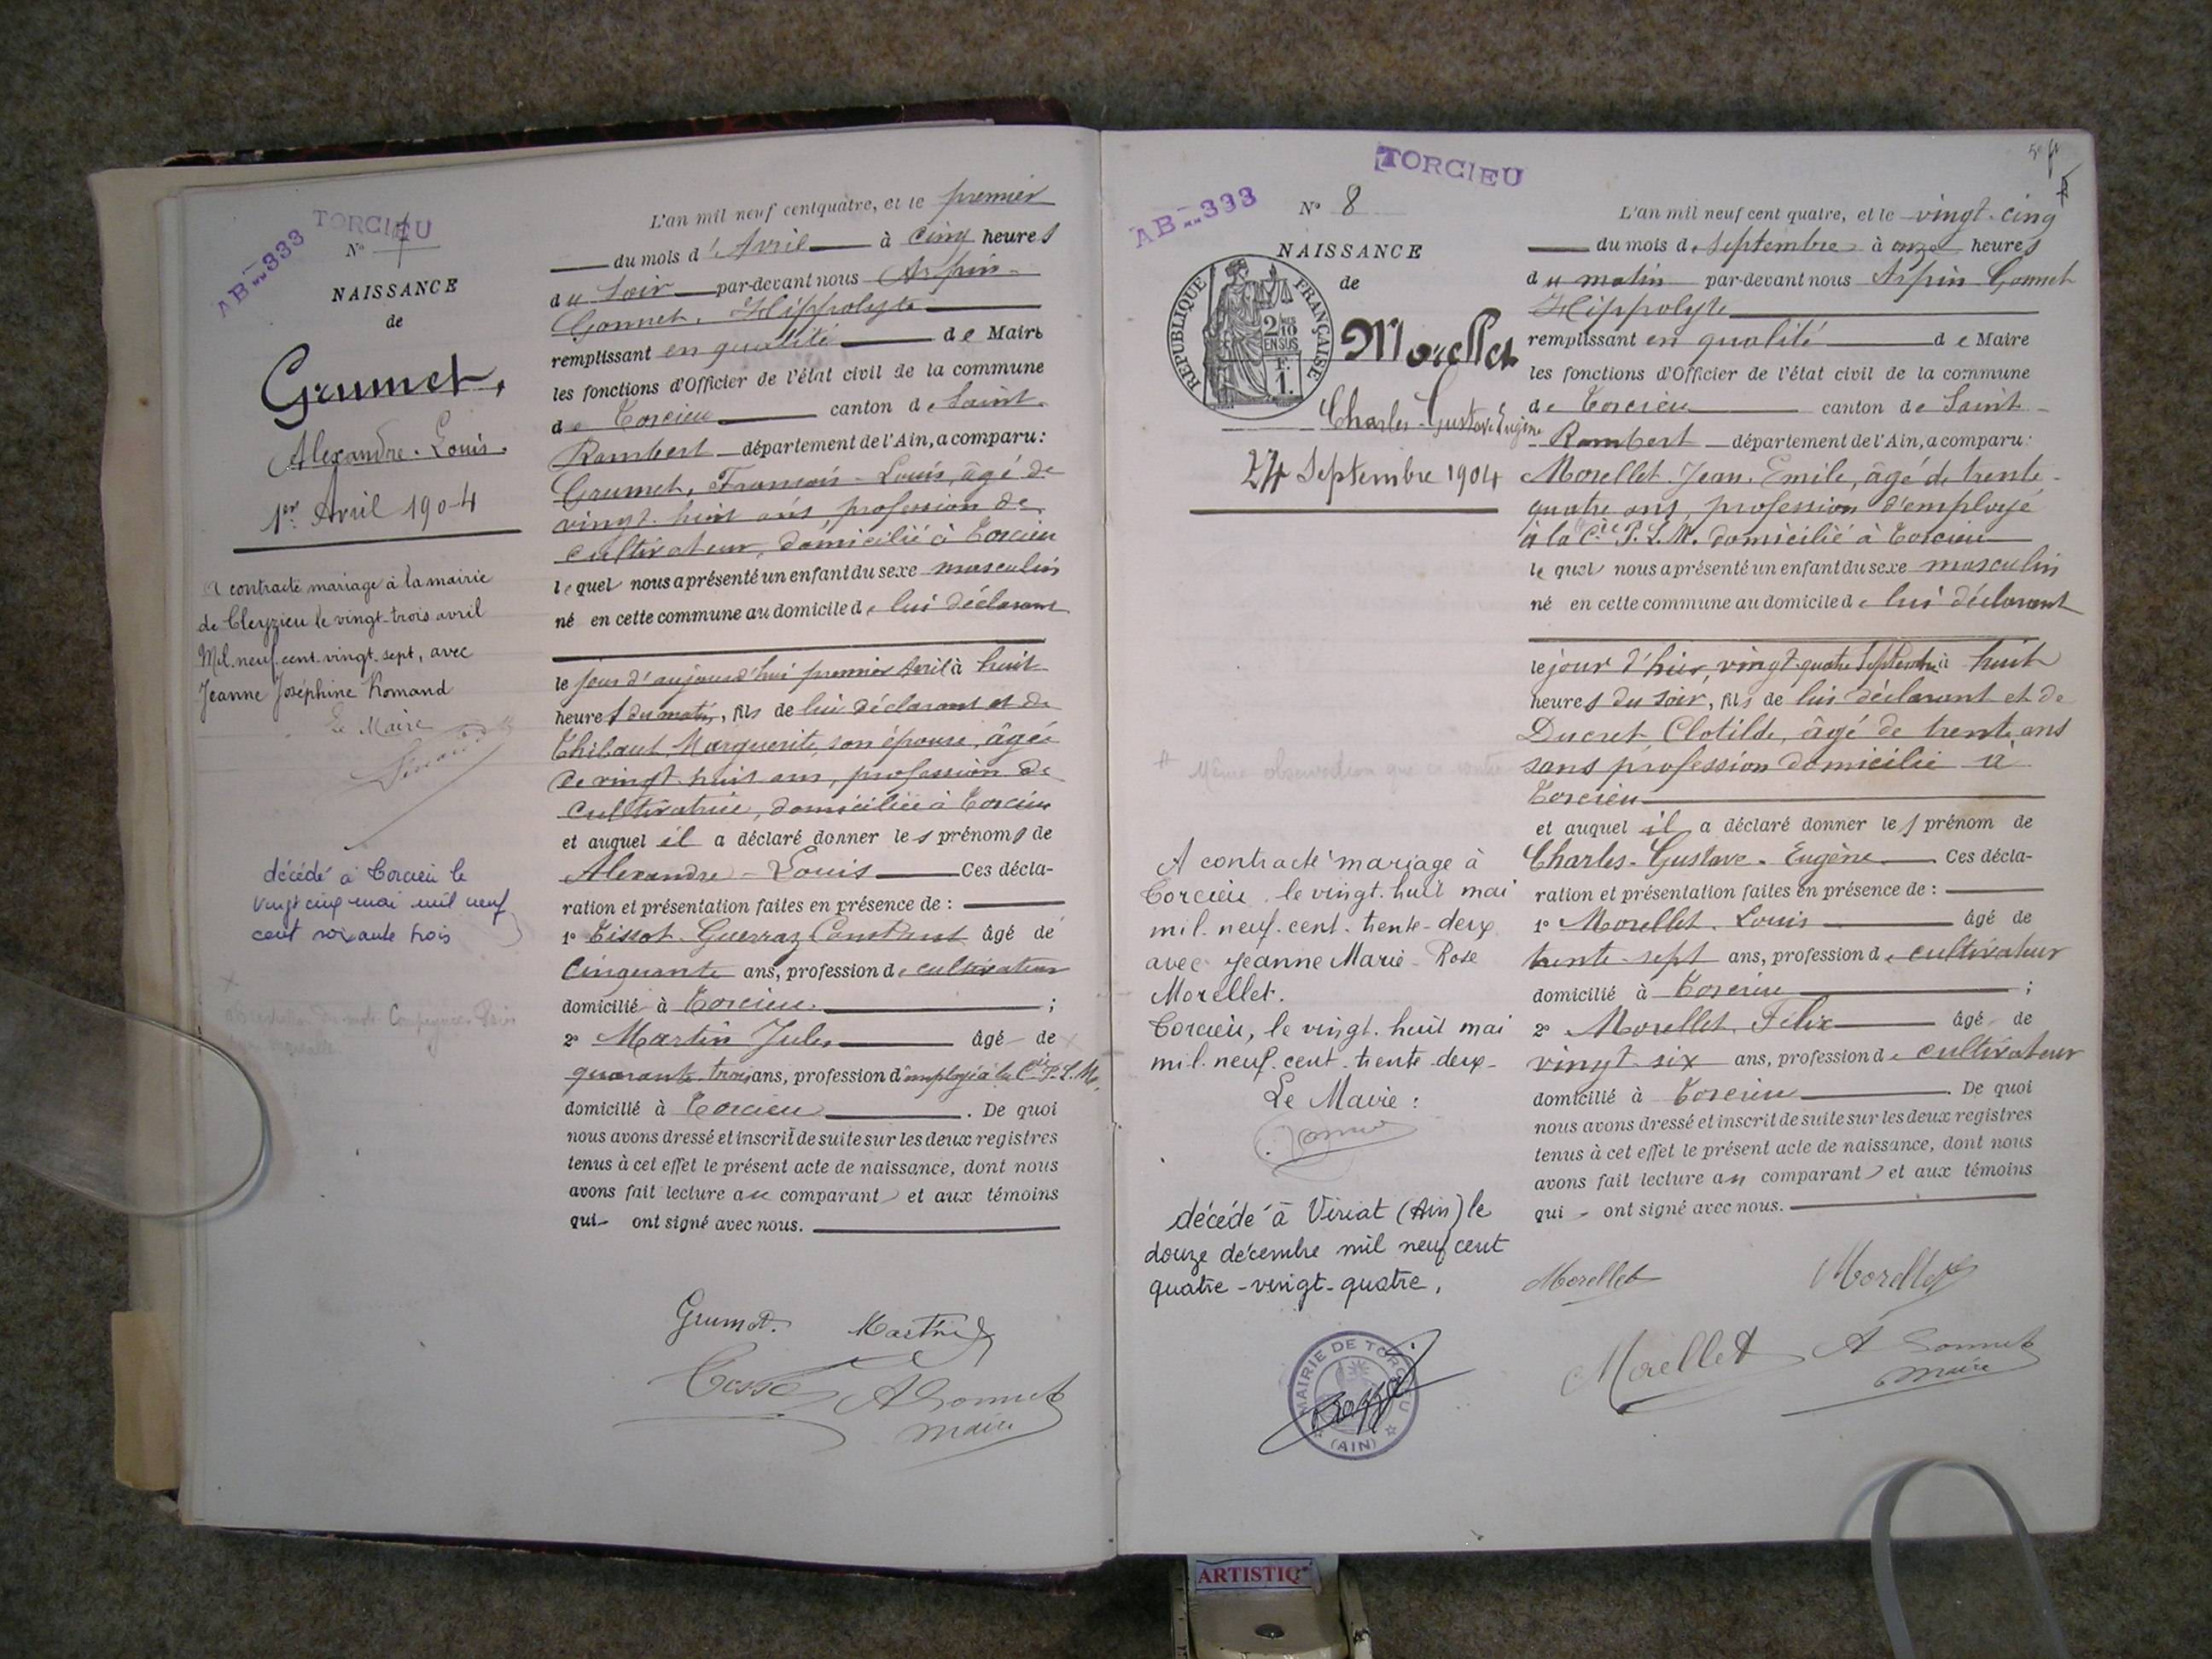 TORCIEU
AB __ 333
N° 7
NAISSANCE
de
Grumet,
Alexandre-Louis.
1er Avril 1904
A contracté mariage à la mairie
de Cleyzieu le vingt-trois avril
Mil-neuf-cent-vingt-sept, avec
Jeanne Joséphine Romand
Le Maire
décédé à Torcieu le
vingt cinq mai mil neuf
cent soixante trois
L'an mil neuf cent quatre, et le premier
du mois d'Avril à cinq heures
du soir par-devant nous Arpin-
Gonnet, Hippolyte
remplissant en qualité de Maire
les fonctions d'Officier de l'état civil de la commune
de Torcieu canton de Saint-
Rambert département de l'Ain, a comparu:
Grumet, François-Louis, âgé de
vingt-huit ans profession de
cultivateur, domicilié à Torcieu
lequel nous a présenté un enfant du sexe masculin
né en cette commune au domicile de lui déclarant
le jour d'aujourd'hui premier Avril à huit
heures du matin, fils de lui déclarant et de
Thibaut Marguerite, son épouse, âgée
de vingt-huit ans, profession de
cultivatrice, domiciliée à Torcieu
et auquel il a déclaré donner les prénoms de
Alexandre-Louis Ces décla-
ration et présentation faites en présence de :
1° Tissot-Guerraz Constant âgé de
cinquante ans, profession de cultivateur
domicilié à Torcieu ;
2° Martin Jules âgé de
quarante-trois ans, profession d'employé à la Cie P.L.M.
domicilié à Torcieu . De quoi
nous avons dressé et inscrit de suite sur les deux registres
tenus à cet effet le présent acte de naissance, dont nous
avons fait lecture au comparant et aux témoins
qui ont signé avec nous.
Grumet. Martin
A Gonnet
maire
TORCIEU
AB __ 333
N° 8
NAISSANCE
de
RÉPUBLIQUE FRANÇAISE
2/10 EN SUS
1 F.
Morellet
Charles-Gustave Eugène
24 Septembre 1904
Même observation que ci contre
A contracté mariage à
Torcieu, le vingt-huit mai
mil-neuf-cent-trente-deux
avec Jeanne Marie-Rose
Morellet.
Torcieu, le vingt-huit mai
mil-neuf-cent-trente-deux-
Le Maire :
décédé à Viriat (Ain) le
douze décembre mil neuf cent
quatre-vingt-quatre.
MAIRIE DE TORCIEU
(AIN)
L'an mil neuf cent quatre, et le vingt-cinq
du mois de Septembre à onze heures
du matin par-devant nous Arpin Gonnet
Hippolyte
remplissant en qualité de Maire
les fonctions d'Officier de l'état civil de la commune
de Torcieu canton de Saint-
Rambert département de l'Ain, a comparu:
Morellet Jean-Emile, âgé de trente-
quatre ans, profession d'employé
à la Cie P.L.M. domicilié à Torcieu
lequel nous a présenté un enfant du sexe masculin
né en cette commune au domicile de lui déclarant
le jour d'hier, vingt-quatre Septembre à huit
heures du soir, fils de lui déclarant et de
Ducret Clotilde, âgé de trente ans
sans profession domicilié à
Torcieu
et auquel il a déclaré donner les prénom de
Charles-Gustave-Eugène Ces décla-
ration et présentation faites en présence de :
1° Morellet-Louis âgé de
trente-sept ans, profession de cultivateur
domicilié à Torcieu ;
2° Morellet-Félix âgé de
vingt-six ans, profession de cultivateur
domicilié à Torcieu . De quoi
nous avons dressé et inscrit de suite sur les deux registres
tenus à cet effet le présent acte de naissance, dont nous
avons fait lecture au comparant et aux témoins
qui ont signé avec nous.
Morellet Morellet
Morellet A Gonnet
maire
ARTISTIQ